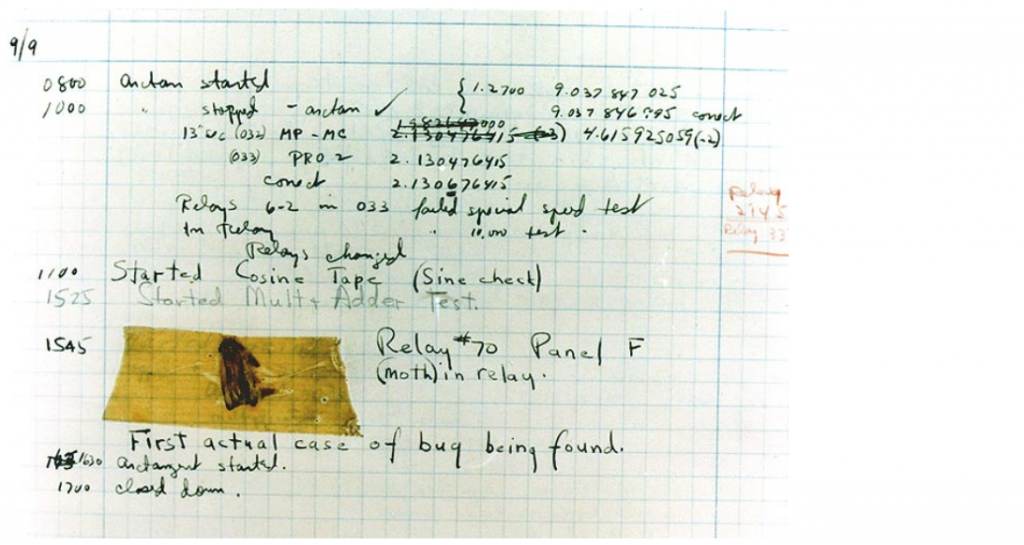 9/9
0800 arctan started { 1.2700 9.037 847 025
1000 " stopped - arctan ✓ 9.037 846 995 correct
13" sec (032) MP - MC 1.982647000 2.130476415 (-3) 4.615925059(-2)
(033) PRO 2 2.130476415
correct 2.130676415
Relays 6-2 in 033 failed special speed test
In relay " 10,000 test .
Relay
2145
Relay 33
Relays changed
1100 Started Cosine Tape (Sine check)
1525 Started Mult + Adder Test.
1545 Relay #70 Panel F
(moth) in relay.
First actual case of bug being found.
1630 arctangent started.
1700 closed down.